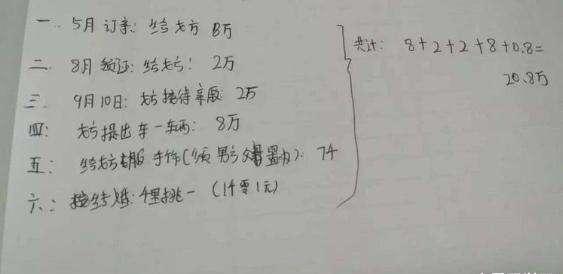 一. 5月订亲: 给女方 8万
二. 8月领证: 给女方: 2万
三. 9月10日: 女方接待 2万
四: 女方提出车一辆: 8万
五: 给女方 手饰( 男方父 置办): 7千
六: 结婚: 千里挑一 (1千零1元)
共计: 8+2+2+8+0.8=
20.8万